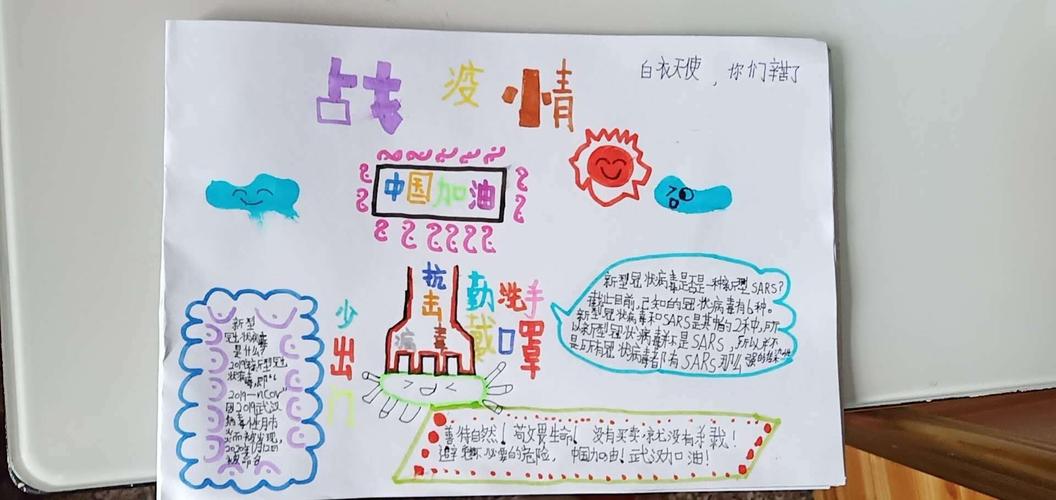 战疫情
白衣天使，你们辛苦了
中国加油
抗击病毒
少出门
勤洗手
戴口罩
新型
冠状病毒
是什么？
2019新型冠
状病毒，即"
2019-nCoV"
因2019武汉
病毒性
而被发现，
2020年1月12日
被命名
新型冠状病毒是否是一种新型SARS？
截止目前，已知的冠状病毒有6种。
新型冠状病毒和SARS是其中的2种，所
以新型冠状病毒不是SARS，所以并不
是所有冠状病毒都有SARS那么强的传染性
善待自然！敬畏生命！没有买卖 就没有杀戮！
避免 必要的危险，中国加油！武汉加油！